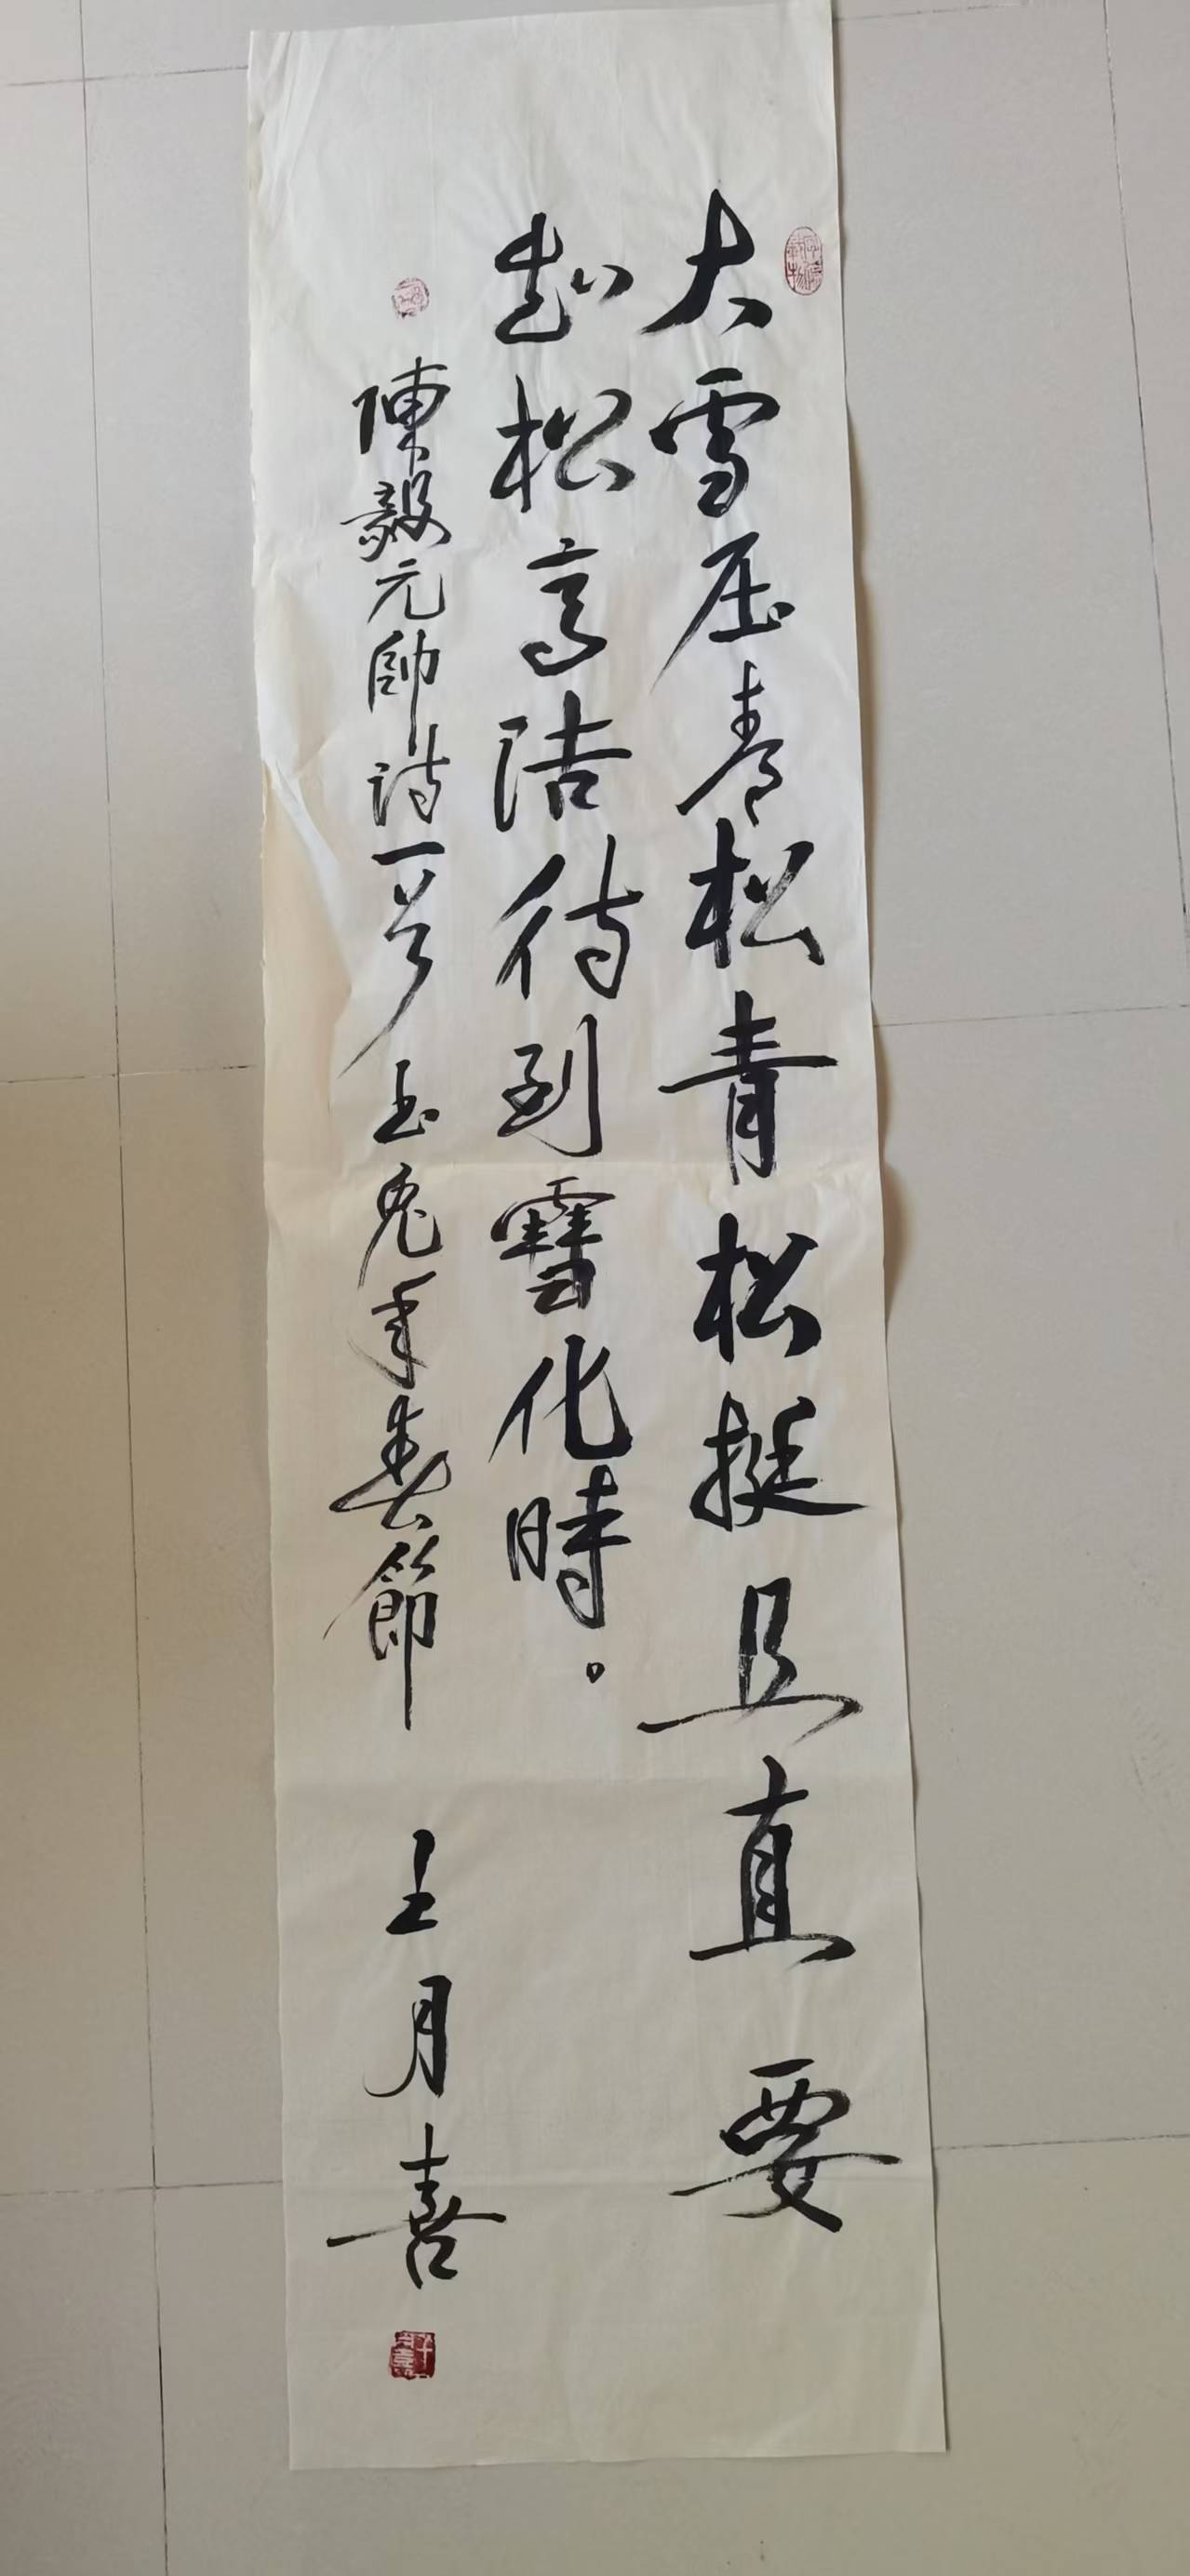 大雪压青松青松挺且直要
知松高洁待到雪化時。
陳毅元帥诗一首玉兔年春節 王月喜